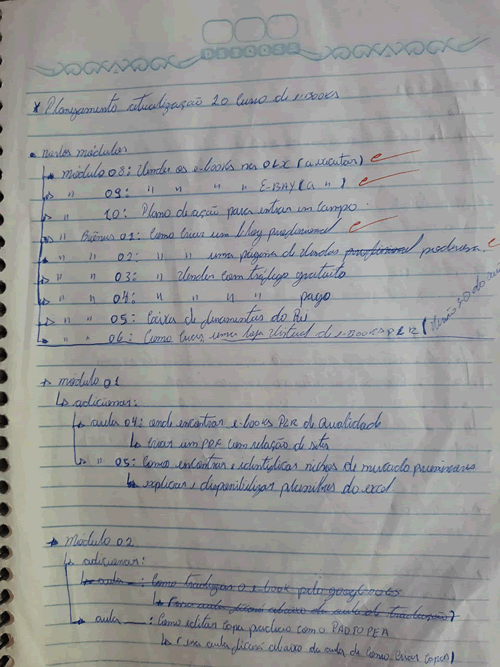 * Planejamento atualização 2.0 curso de e-books
• novos módulos
módulo 08: Vender os e-books na OLX (a executar)
" 09: " " " " E-BAY (a ")
" 10: Plano de ação para entrar em campo.
" Bônus 01: Como criar um blog profissional
" " 02: " " uma página de vendas profissional poderosa.
" " 03: " Vender com tráfego gratuito
" " 04: " " " " pago
" " 05: Caixa de ferramentas do
" " 06: Como criar uma loja virtual de e-BOOKS PLR (Versão 3.0 do
módulo 01
adicionar:
aula 04: onde encontrar e-books PLR de Qualidade
criar um PDF com relação de sites
" 05: Como encontrar e identificar nichos de mercado
explicar e disponibilizar planilhas do excel
módulo 02
adicionar:
aula __: Como traduzir o e-book pelo google
aula __: Como editar capa pelo com o
(essa aula ficará abaixo da aula de Como criar capas)